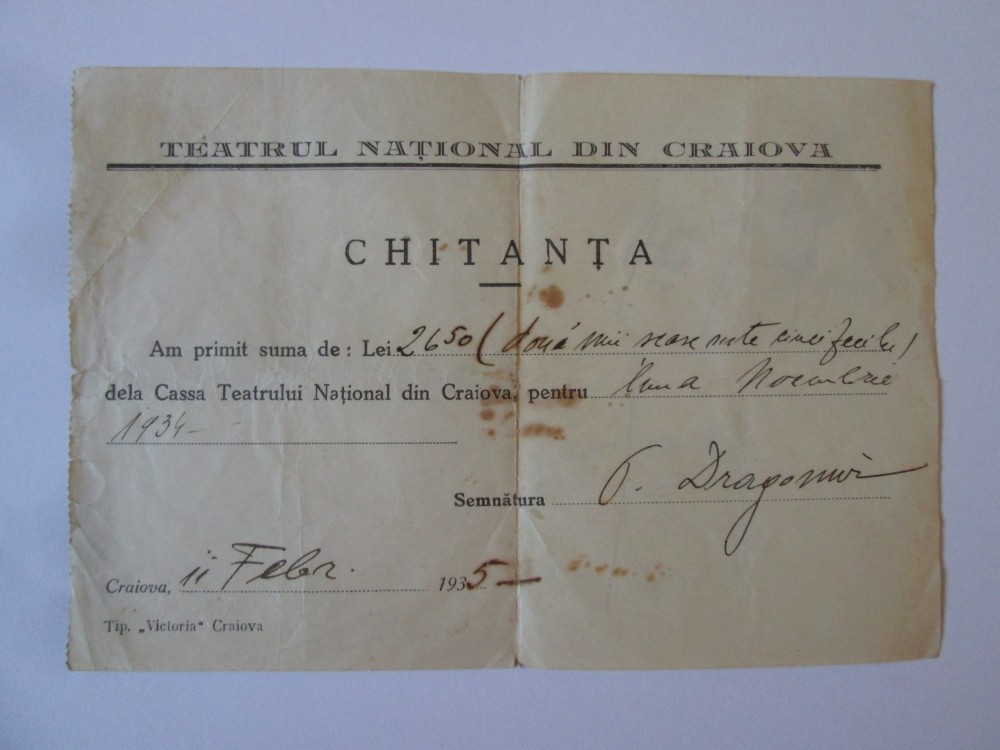 TEATRUL NAȚIONAL DIN CRAIOVA
CHITANȚA
Am primit suma de: Lei 2650 (două mii șase sute cinci zeci lei)
dela Cassa Teatrului Național din Craiova, pentru luna Noembrie
1934 -
Semnătura T. Dragomir
Craiova, 11 Febr. 1935 -
Tip. „Victoria“ Craiova